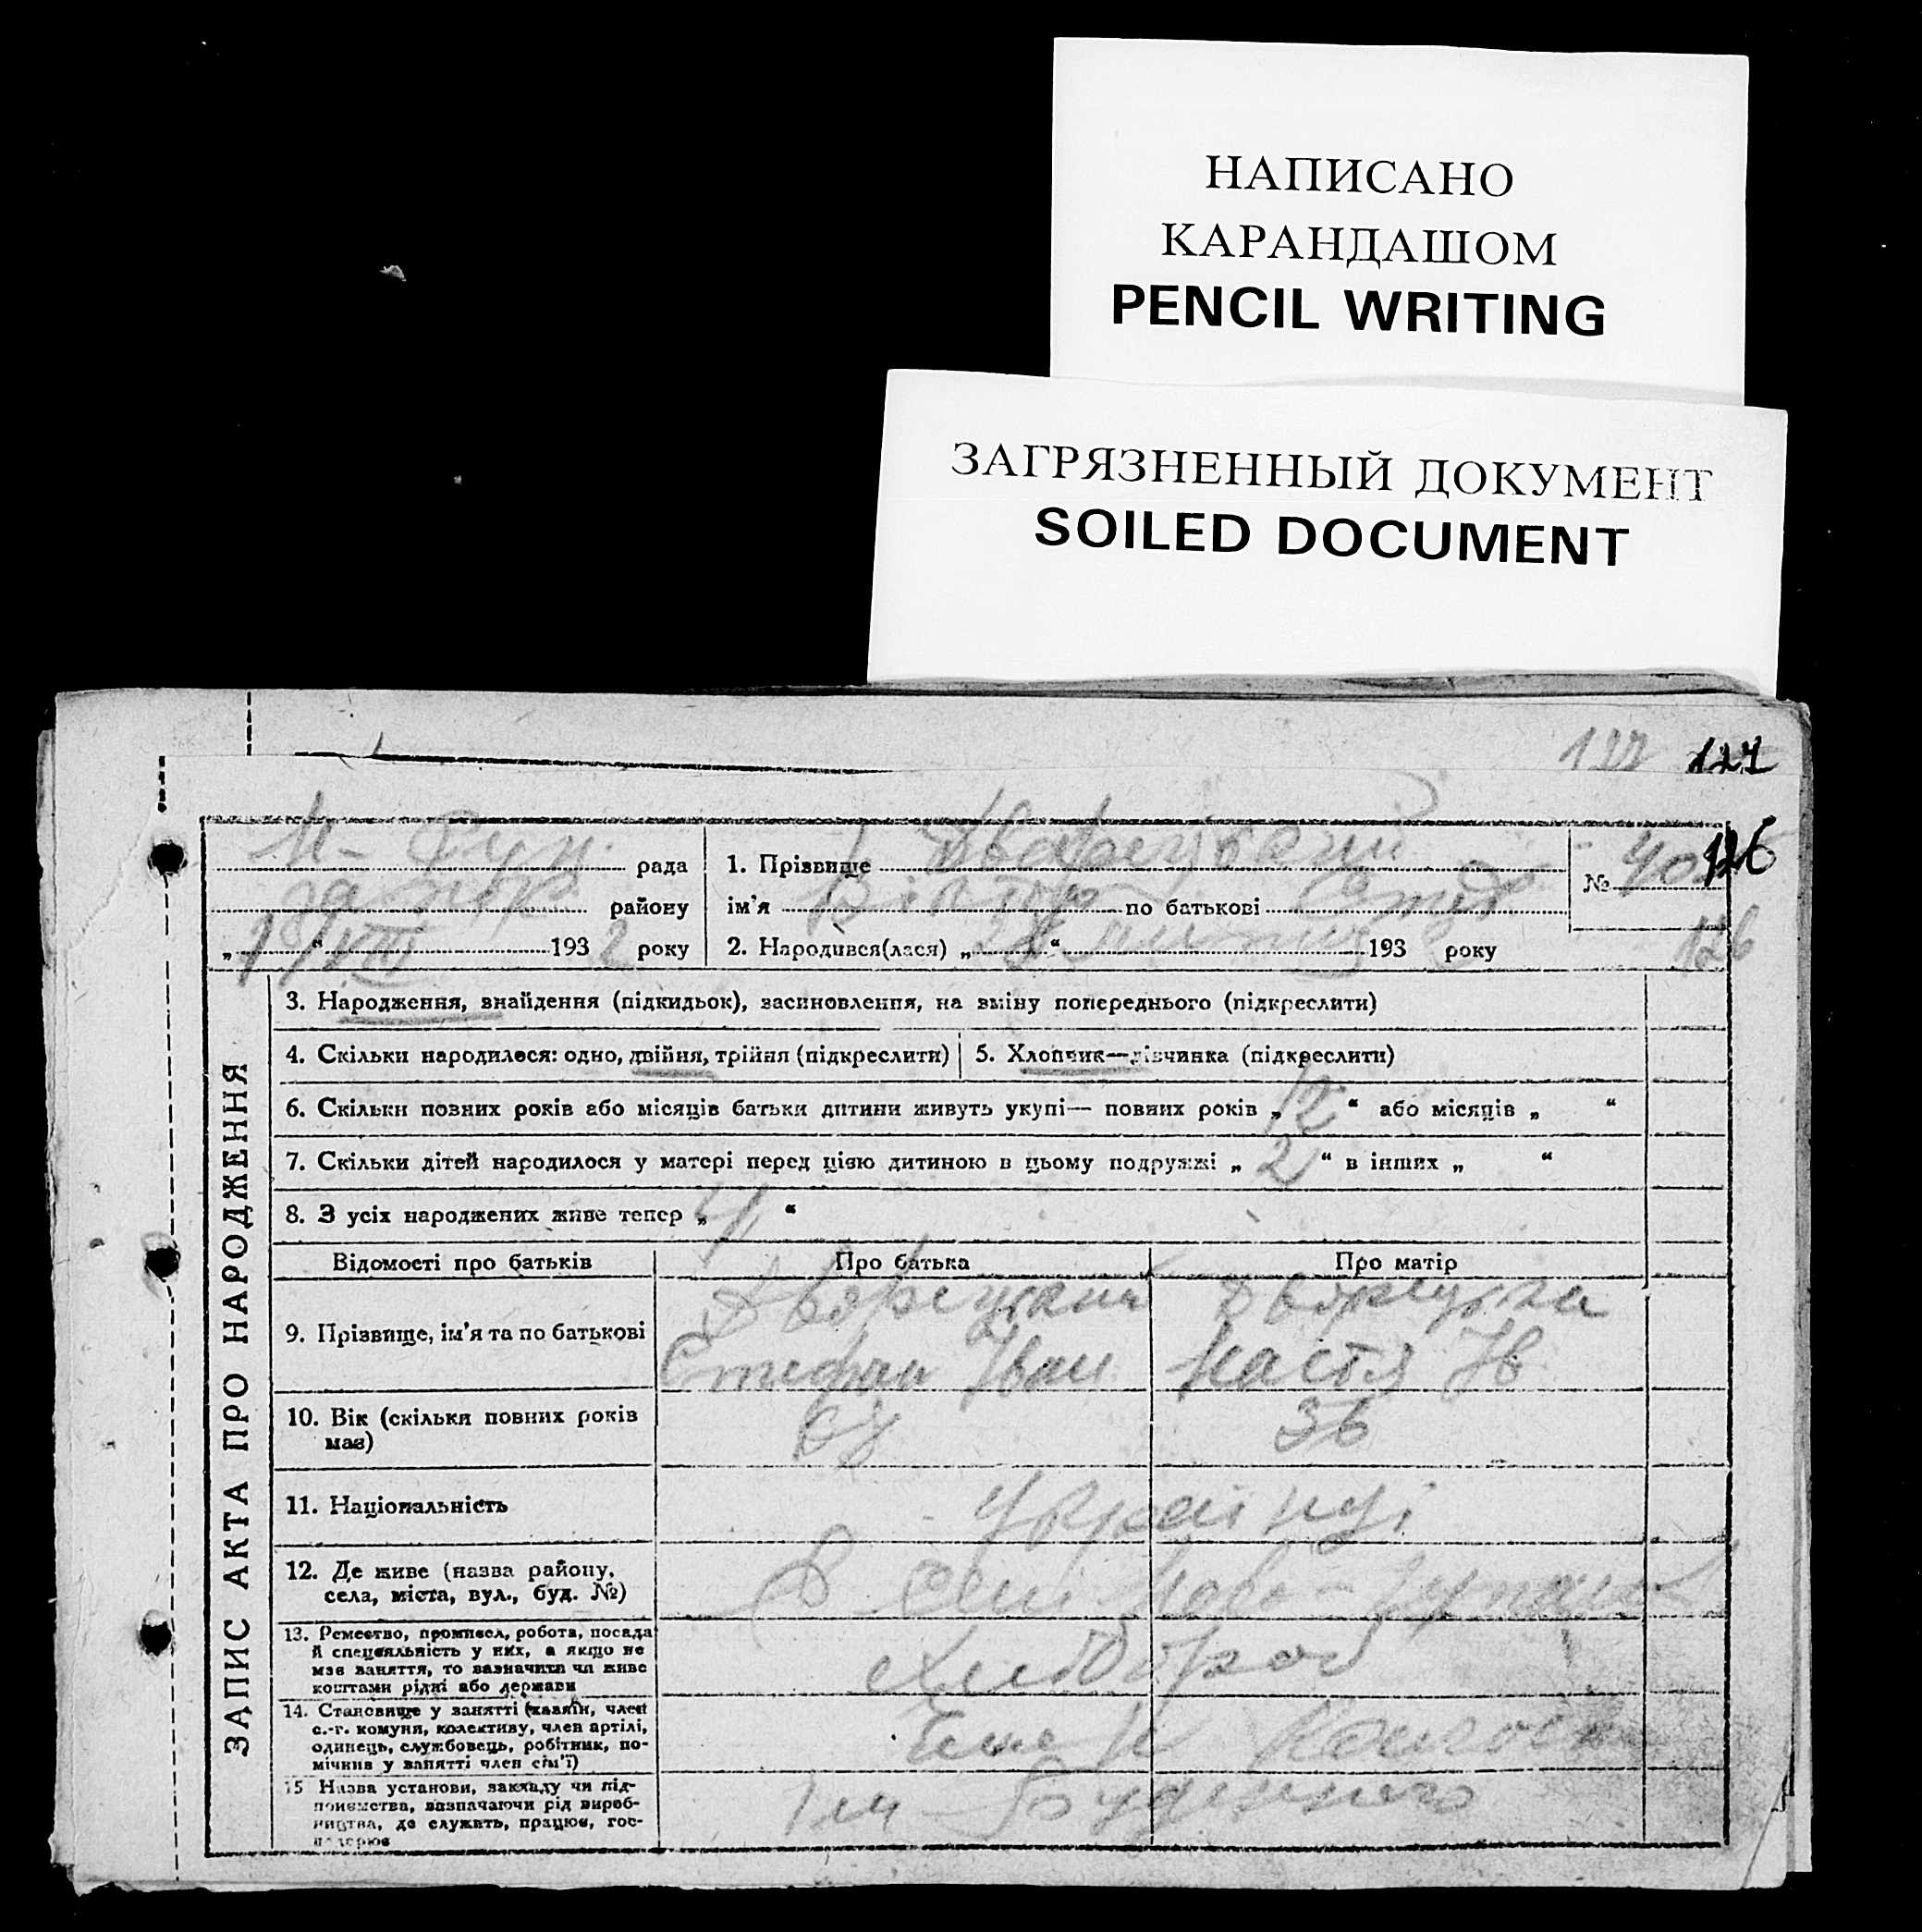 НАПИСАНО
КАРАНДАШОМ
PENCIL WRITING
ЗАГРЯЗНЕННЫЙ ДОКУМЕНТ
SOILED DOCUMENT
122 127
М- рада
1. Прізвище Дворецький
№ 40 126
району
ім'я Віктор по батькові Стеф
„1“ VIII 1932 року
2. Народився(лася) „28“ липня 193 року
126
ЗАПИС АКТА ПРО НАРОДЖЕННЯ
3. Народження, знайдення (підкидьок), засиновлення, на зміну попереднього (підкреслити)
4. Скільки народилося: одно, двійня, трійня (підкреслити)
5. Хлопчик—дівчинка (підкреслити)
6. Скільки повних років або місяців батьки дитини живуть укупі— повних років „12“ або місяців „ “
7. Скільки дітей народилося у матері перед цією дитиною в цьому подружжі „2“ в інших „ “
8. З усіх народжених живе тепер „4“
Відомості про батьків
Про батька
Про матір
9. Прізвище, ім'я та по батькові
Дворецький
Стефан Іван
Дворецька
Настя Ів
10. Вік (скільки повних років
має)
36
11. Національність
Українці
12. Де живе (назва району,
села, міста, вул., буд. №)
В селі Ново-
13. Ремество, промисел, робота, посада
й спеціяльність у них, а якщо не
має заняття, то зазначити чи живе
коштами рідні або держави
Хлібороб
14. Становище у занятті (хазяїн, член
с.-г. комуни, колективу, член артілі,
одинець, службовець, робітник, по-
мічник у занятті член сім'ї)
Член
15 Назва установи, закладу чи під-
приємства, зазначаючи рід вироб-
ництва, де служить, працює, гос-
подарює
Ім Буденного